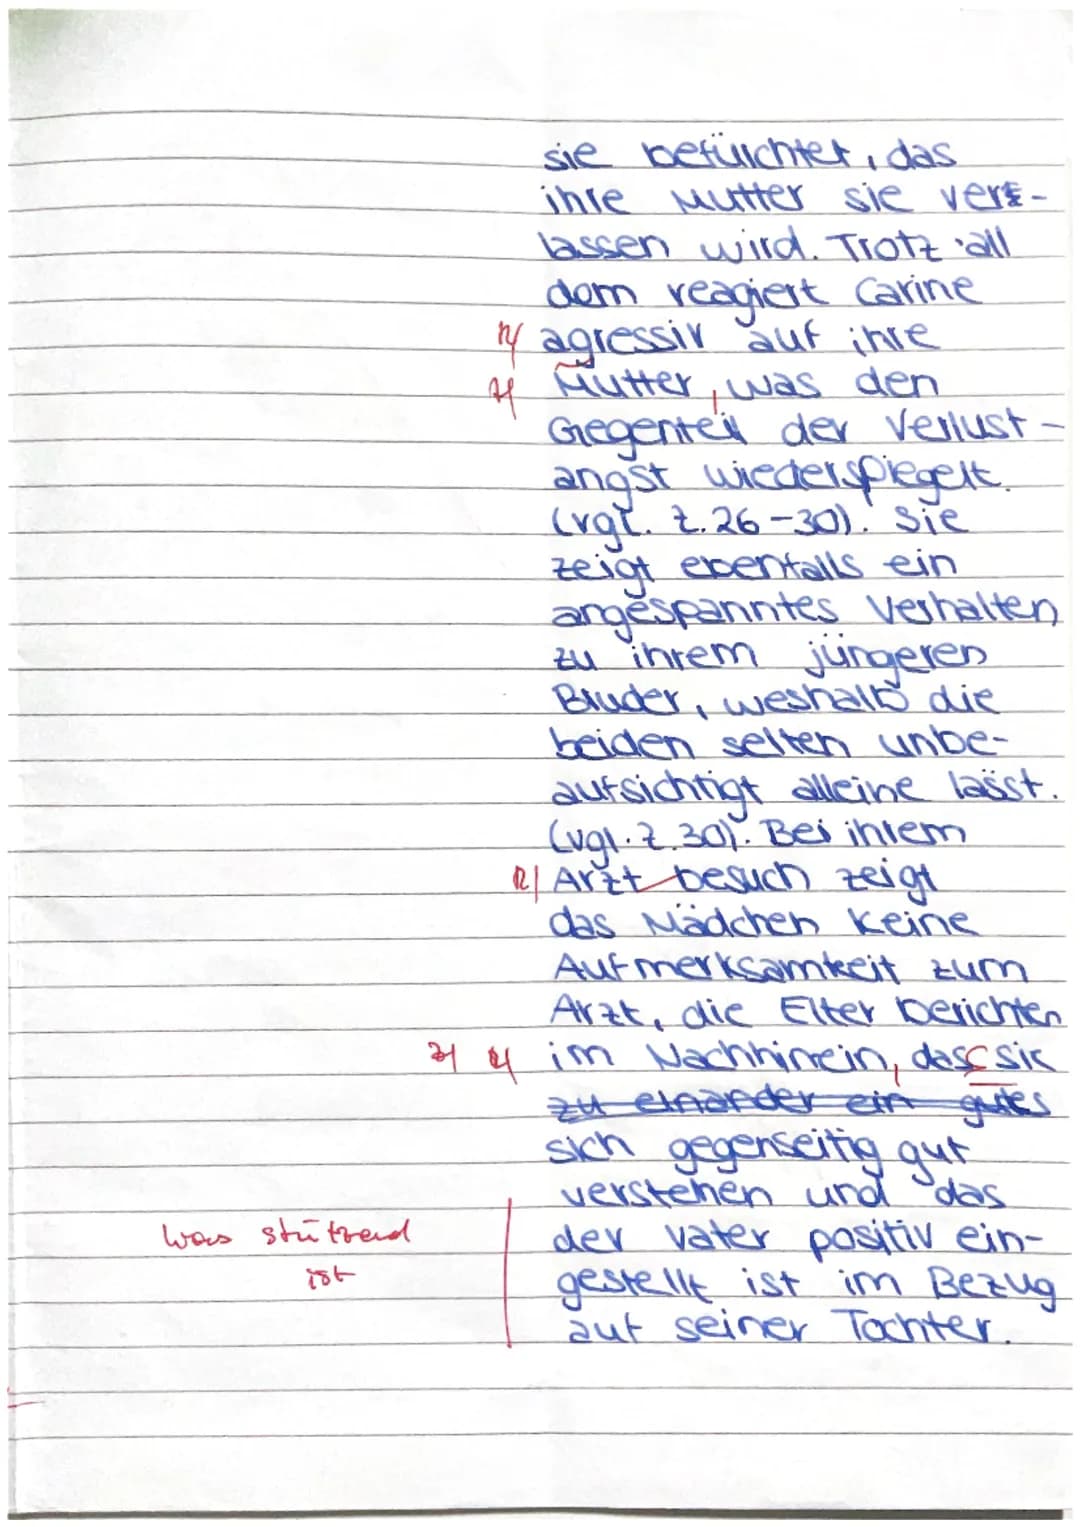 sie befürchtet, das
ihre Mutter sie ver-
lassen wird. Trotz all
dem reagiert Carine
R/ agressiv auf ihre
Z/ Mutter, was den
Gegenteil der Verlust-
angst wiederspiegelt.
(vgl. Z. 26-30). Sie
zeigt ebenfalls ein
angespanntes Verhalten
zu ihrem jüngeren
Bruder, weshalb die
beiden selten unbe-
aufsichtigt alleine lässt.
(vgl. Z. 30). Bei ihrem
R/ Arzt besuch zeigt
das Mädchen keine
Aufmerksamkeit zum
Arzt, die Elter berichten
Z/ R/ im Nachhinein, dass sie
zu einander ein gutes
sich gegenseitig gut
verstehen und das
was stützend der Vater positiv ein-
ist gestellt ist im Bezug
auf seiner Tochter.